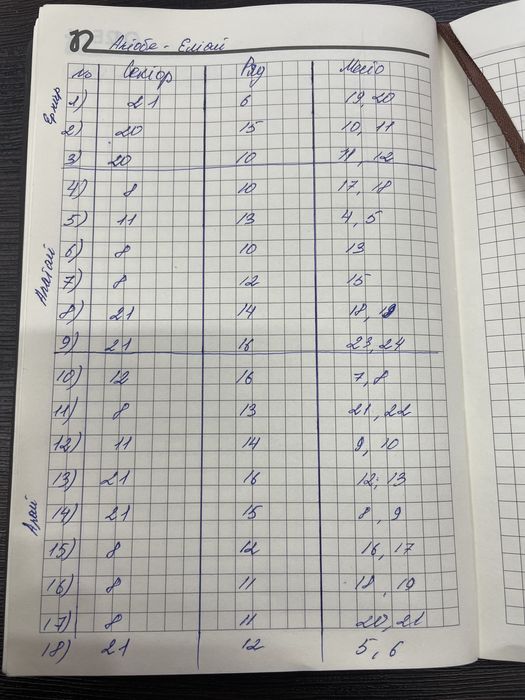 Актобе - Елімай
№ Сектор Ряд Место
Ернар
1) 21 6 19, 20
2) 20 15 10, 11
3) 20 10 11, 12
Магжан
4) 8 10 17, 18
5) 11 13 4, 5
6) 8 10 13
7) 8 12 15
8) 21 14 18, 19
9) 21 16 23, 24
10) 12 16 7, 8
11) 8 13 21, 22
12) 11 14 9, 10
13) 21 16 12, 13
Арай
14) 21 15 8, 9
15) 8 12 16, 17
16) 8 11 18, 19
17) 8 11 20, 21
18) 21 12 5, 6